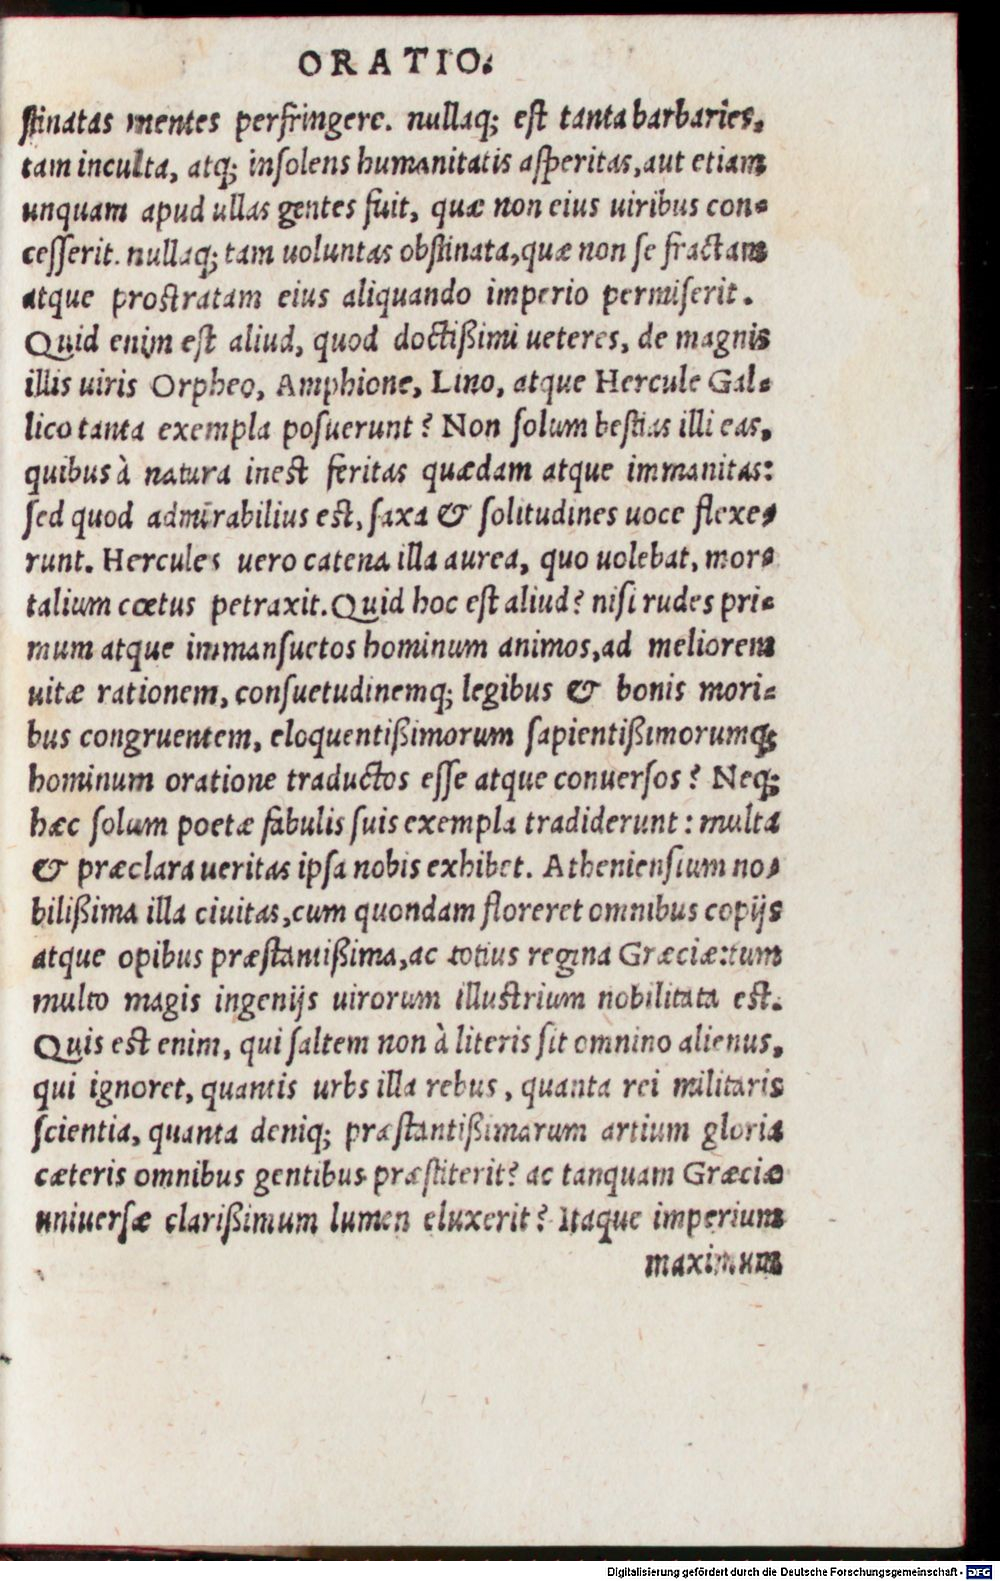 ORATIO.
stinatas mentes perfringere. nullaq; est tanta barbaries,
tam inculta, atq; insolens humanitatis asperitas, aut etiam
unquam apud ullas gentes fuit, quæ non eius uiribus con-
cesserit. nullaq; tam uoluntas obstinata, quæ non se fractam
atque prostratam eius aliquando imperio permiserit.
Quid enim est aliud, quod doctißimi ueteres, de magnis
illis uiris Orpheo, Amphione, Lino, atque Hercule Gal-
lico tanta exempla posuerunt? Non solum bestias illi eas,
quibus à natura inest feritas quædam atque immanitas:
sed quod admirabilius est, saxa & solitudines uoce flexe-
runt. Hercules uero catena illa aurea, quo uolebat, mor-
talium cœtus petraxit. Quid hoc est aliud? nisi rudes pri-
mum atque immansuetos hominum animos, ad meliorem
uitæ rationem, consuetudinemq; legibus & bonis mori-
bus congruentem, eloquentißimorum sapientißimorumq;
hominum oratione traductos esse atque conuersos? Neq;
hæc solum poetæ fabulis suis exempla tradiderunt: multa
& præclara ueritas ipsa nobis exhibet. Atheniensium no-
bilißima illa ciuitas, cum quondam floreret omnibus copijs
atque opibus præstantißima, ac totius regina Græciæ: tum
multo magis ingenijs uirorum illustrium nobilitata est.
Quis est enim, qui saltem non à literis sit omnino alienus,
qui ignoret, quantis urbs illa rebus, quanta rei militaris
scientia, quanta deniq; præstantißimarum artium gloria
cæteris omnibus gentibus præstiterit? ac tanquam Græciæ
uniuersæ clarißimum lumen eluxerit? Itaque imperium
maximum
Digitalisierung gefördert durch die Deutsche Forschungsgemeinschaft - DFG